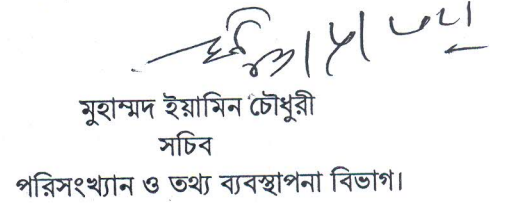 মুহাম্মদ ইয়ামিন চৌধুরী
সচিব
পরিসংখ্যান ও তথ্য ব্যবস্থাপনা বিভাগ।